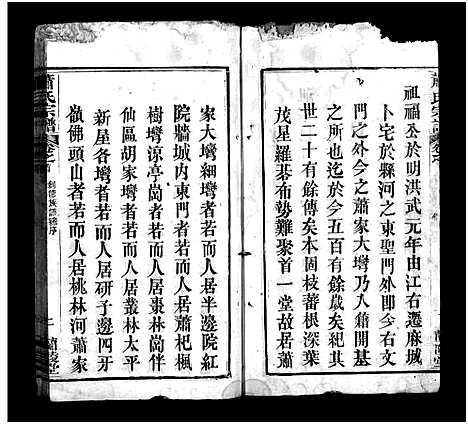 蕭氏宗譜
卷之首
蘭陵堂
祖福公於明洪武元年由江右遷麻城
卜宅於縣河之東聖門外即今東
門之外之蕭家大塆乃入籍開基
之所也迄於今五百有餘歲矣紀其
世二十有餘傳矣本固枝蕃根深葉
茂星羅棊布勢難聚首一堂故居蕭
家大塆細塆者若而人居半邊院紅
院牆城内東門者若而人居蕭杷楓
樹塆涼亭崗者若而人居栗林崗伴
仙區胡家塆者若而人居叢林太平
新屋各塆者若而人居研子邊四牙
嶺佛頭山者若而人居桃林河蕭家
蕭氏宗譜
卷之首
創修族譜總序
二
蘭陵堂